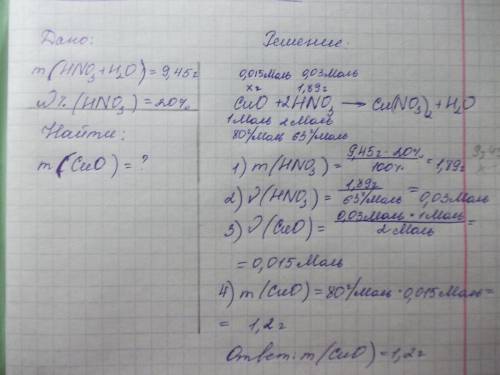 Дано:
m(HNO3+H2O)=9,45г
W%(HNO3)=20%
Найти:
m(CuO)=?
Решение.
0,015моль 0,03моль
xг 1,89г
CuO+2HNO3→Cu(NO3)2+H2O
1моль 2моль
80г/моль 63г/моль
1) m(HNO3)=9,45г·20%/100%=1,89г
2) ν(HNO3)=1,89г/63г/моль=0,03моль
3) ν(CuO)=0,03моль·1моль/2моль=
=0,015моль
4) m(CuO)=80г/моль·0,015моль=
= 1,2г
Ответ: m(CuO)=1,2г